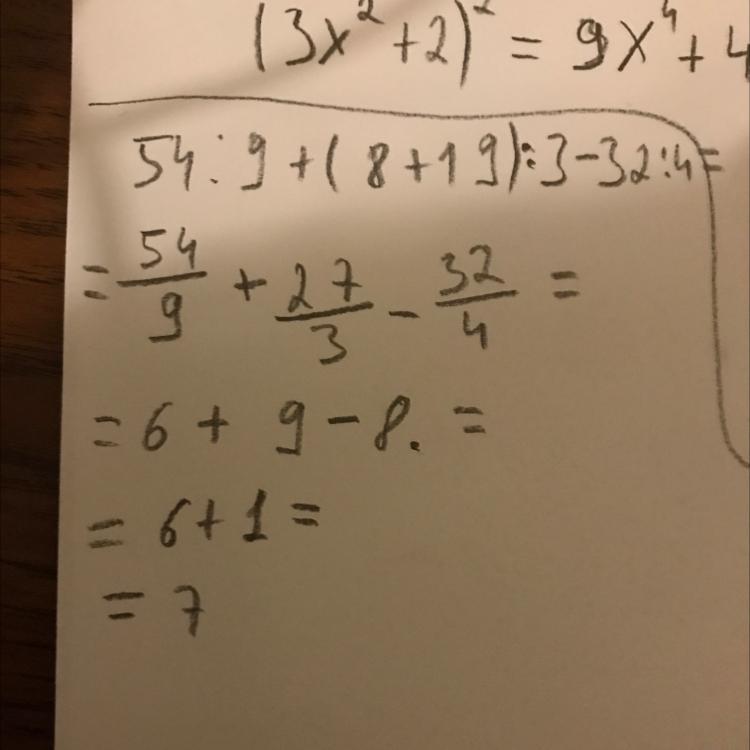 (3x² + 2)² = 9x⁴ + 4
54 : 9 + ( 8 + 19) : 3 - 32 : 4 =
= 54/9 + 27/3 - 32/4 =
= 6 + 9 - 8. =
= 6 + 1 =
= 7